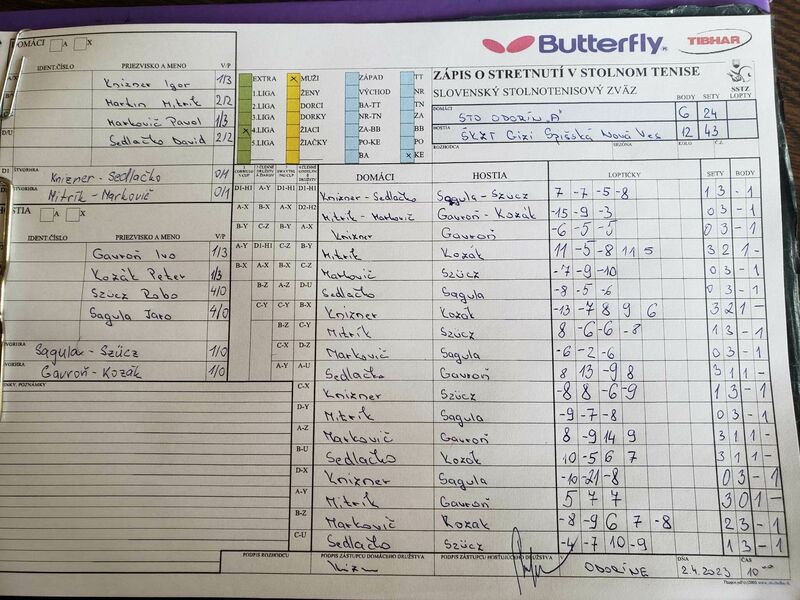 Butterfly
TIBHAR
DOMÁCI A X
IDENT.ČÍSLO PRIEZVISKO A MENO V/P
Knižner Igor 1/3
Martin Mitrík 2/2
Markovič Pavol 1/3
D/U Sedlačko David 2/2
D1 ŠTVORHRA Knižner - Sedlačko 0/1
ŠTVORHRA Mitrík - Markovič 0/1
A X
IDENT.ČÍSLO PRIEZVISKO A MENO V/P
Gavroň Ivo 1/3
Kozák Peter 1/3
Szücz Robo 4/0
Sagula Jaro 4/0
Sagula - Szücz 1/0
Gavroň - Kozák 1/0
POZNÁMKY
EXTRA
1.LIGA
2.LIGA
3.LIGA
x 4.LIGA
5.LIGA
x MUŽI
ŽENY
DORCI
DORKY
ŽIACI
ŽIAČKY
ZÁPAD
VÝCHOD
BA-TT
NR-TN
ZA-BB
PO-KE
BA
TT
NR
TN
ZA
BB
x KE
ZÁPIS O STRETNUTÍ V STOLNOM TENISE
SLOVENSKÝ STOLNOTENISOVÝ ZVÄZ
SSTZ
BODY SETY LOPTY
DOMÁCI STO ODORÍN „A" 6 24
HOSTIA ŠKST Gizi Spišská Nová Ves 12 43
ROZHODCA SEZÓNA KOLO Č.Z.
DOMÁCI HOSTIA LOPTIČKY SETY BODY
D1-H1 A-Y D1-H1 D1-H1 Knižner - Sedlačko Sagula - Szücz 7 -7 -5 -8 1 3 - 1
A-X B-X A-X D2-H2 Mitrík - Markovič Gavroň - Kozák -15 -9 -3 0 3 - 1
B-Y C-Z B-Y A-X Knižner Gavroň -6 -5 -5 0 3 - 1
A-Y D1-H1 C-Z B-Y Mitrík Kozák 11 -5 -8 11 5 3 2 1 -
B-X A-X B-X C-Z Markovič Szücz -7 -9 -10 0 3 - 1
B-Z A-Z D-U Sedlačko Sagula -8 -5 -6 0 3 - 1
C-Y C-Y B-X Knižner Kozák -13 -7 8 9 6 3 2 1 -
B-Z C-Y Mitrík Szücz 8 -6 -6 -8 1 3 - 1
C-X D-Z Markovič Sagula -6 -2 -6 0 3 - 1
A-Y A-U Sedlačko Gavroň 8 13 -9 8 3 1 1 -
C-X Knižner Szücz -8 8 -6 -9 1 3 - 1
D-Y Mitrík Sagula -9 -7 -8 0 3 - 1
A-Z Markovič Gavroň 8 -9 14 9 3 1 1 -
B-U Sedlačko Kozák 10 -5 6 7 3 1 1 -
D-X Knižner Sagula -10 -21 -8 0 3 - 1
A-Y Mitrík Gavroň 5 7 7 3 0 1 -
B-Z Markovič Kozák -8 -9 6 7 -8 2 3 - 1
C-U Sedlačko Szücz -4 -7 10 -9 1 3 - 1
PODPIS ROZHODCU PODPIS ZÁSTUPCU DOMÁCEHO DRUŽSTVA PODPIS ZÁSTUPCU HOSŤUJÚCEHO DRUŽSTVA V DŇA ČAS
ODORÍNE 2.4.2023 10⁰⁰